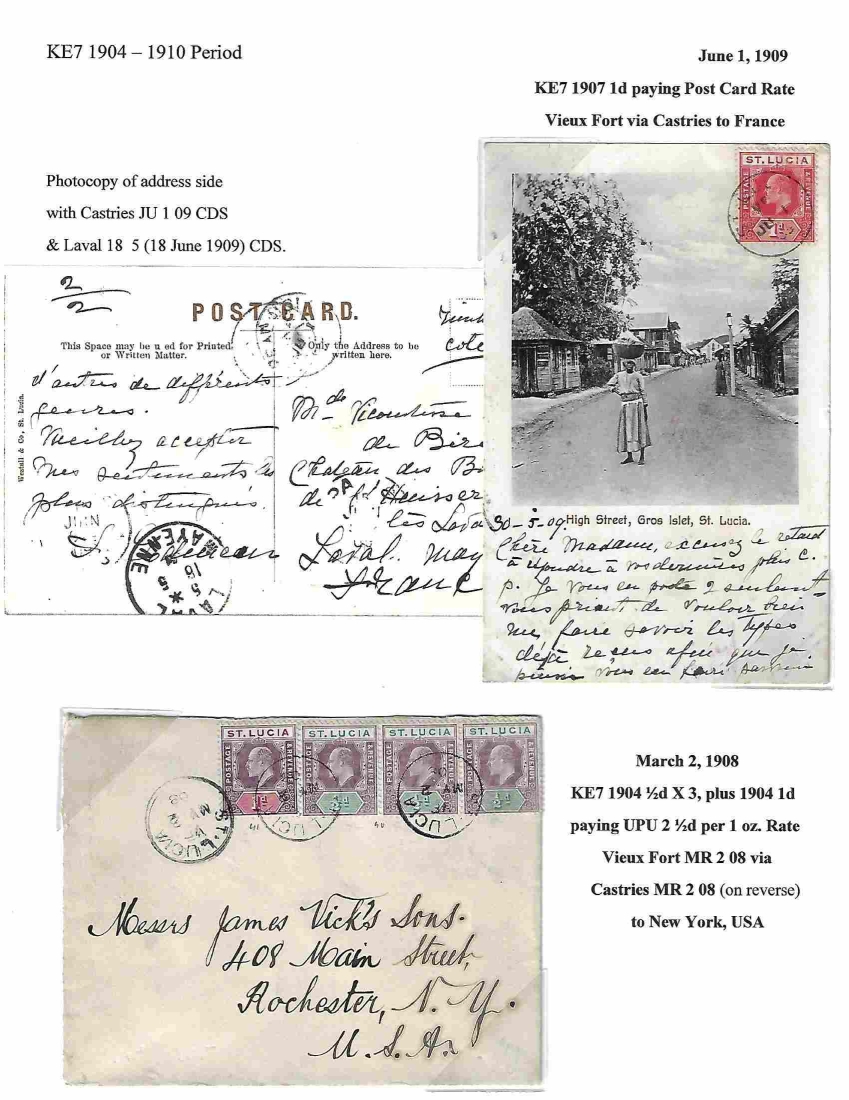 KE7 1904 – 1910 Period
June 1, 1909
KE7 1907 1d paying Post Card Rate
Vieux Fort via Castries to France
Photocopy of address side
with Castries JU 1 09 CDS
& Laval 18 5 (18 June 1909) CDS.
ST. LUCIA
POSTAGE
& REVENUE
1d
2/2
POST CARD.
This Space may be u ed for Printed
or Written Matter.
Only the Address to be
written here.
cote
Westall & Co, St. Lucia.
d'autres de différents
genres.
Veuillez accepter
mes sentiments les
plus distingués.
Mde Vicomtesse
de Bire
Chateau des B
de St
lès Lava
Laval. may
Franc
MAYENNE
High Street, Gros Islet, St. Lucia.
30-5-09.
Chère Madame, excusez le retard
à répondre à vos dernières c.
p. Je vous en poste 2 seulement
vous priant de vouloir bien
me faire savoir les types
déjà recus afin que je
puisse vous en faire
ST. LUCIA
ST. LUCIA
ST. LUCIA
ST. LUCIA
POSTAGE
& REVENUE
ST. LUCIA
Messrs James Vick's Sons.
408 Main Street,
Rochester, N. Y.
U. S. A.
March 2, 1908
KE7 1904 ½d X 3, plus 1904 1d
paying UPU 2 ½d per 1 oz. Rate
Vieux Fort MR 2 08 via
Castries MR 2 08 (on reverse)
to New York, USA